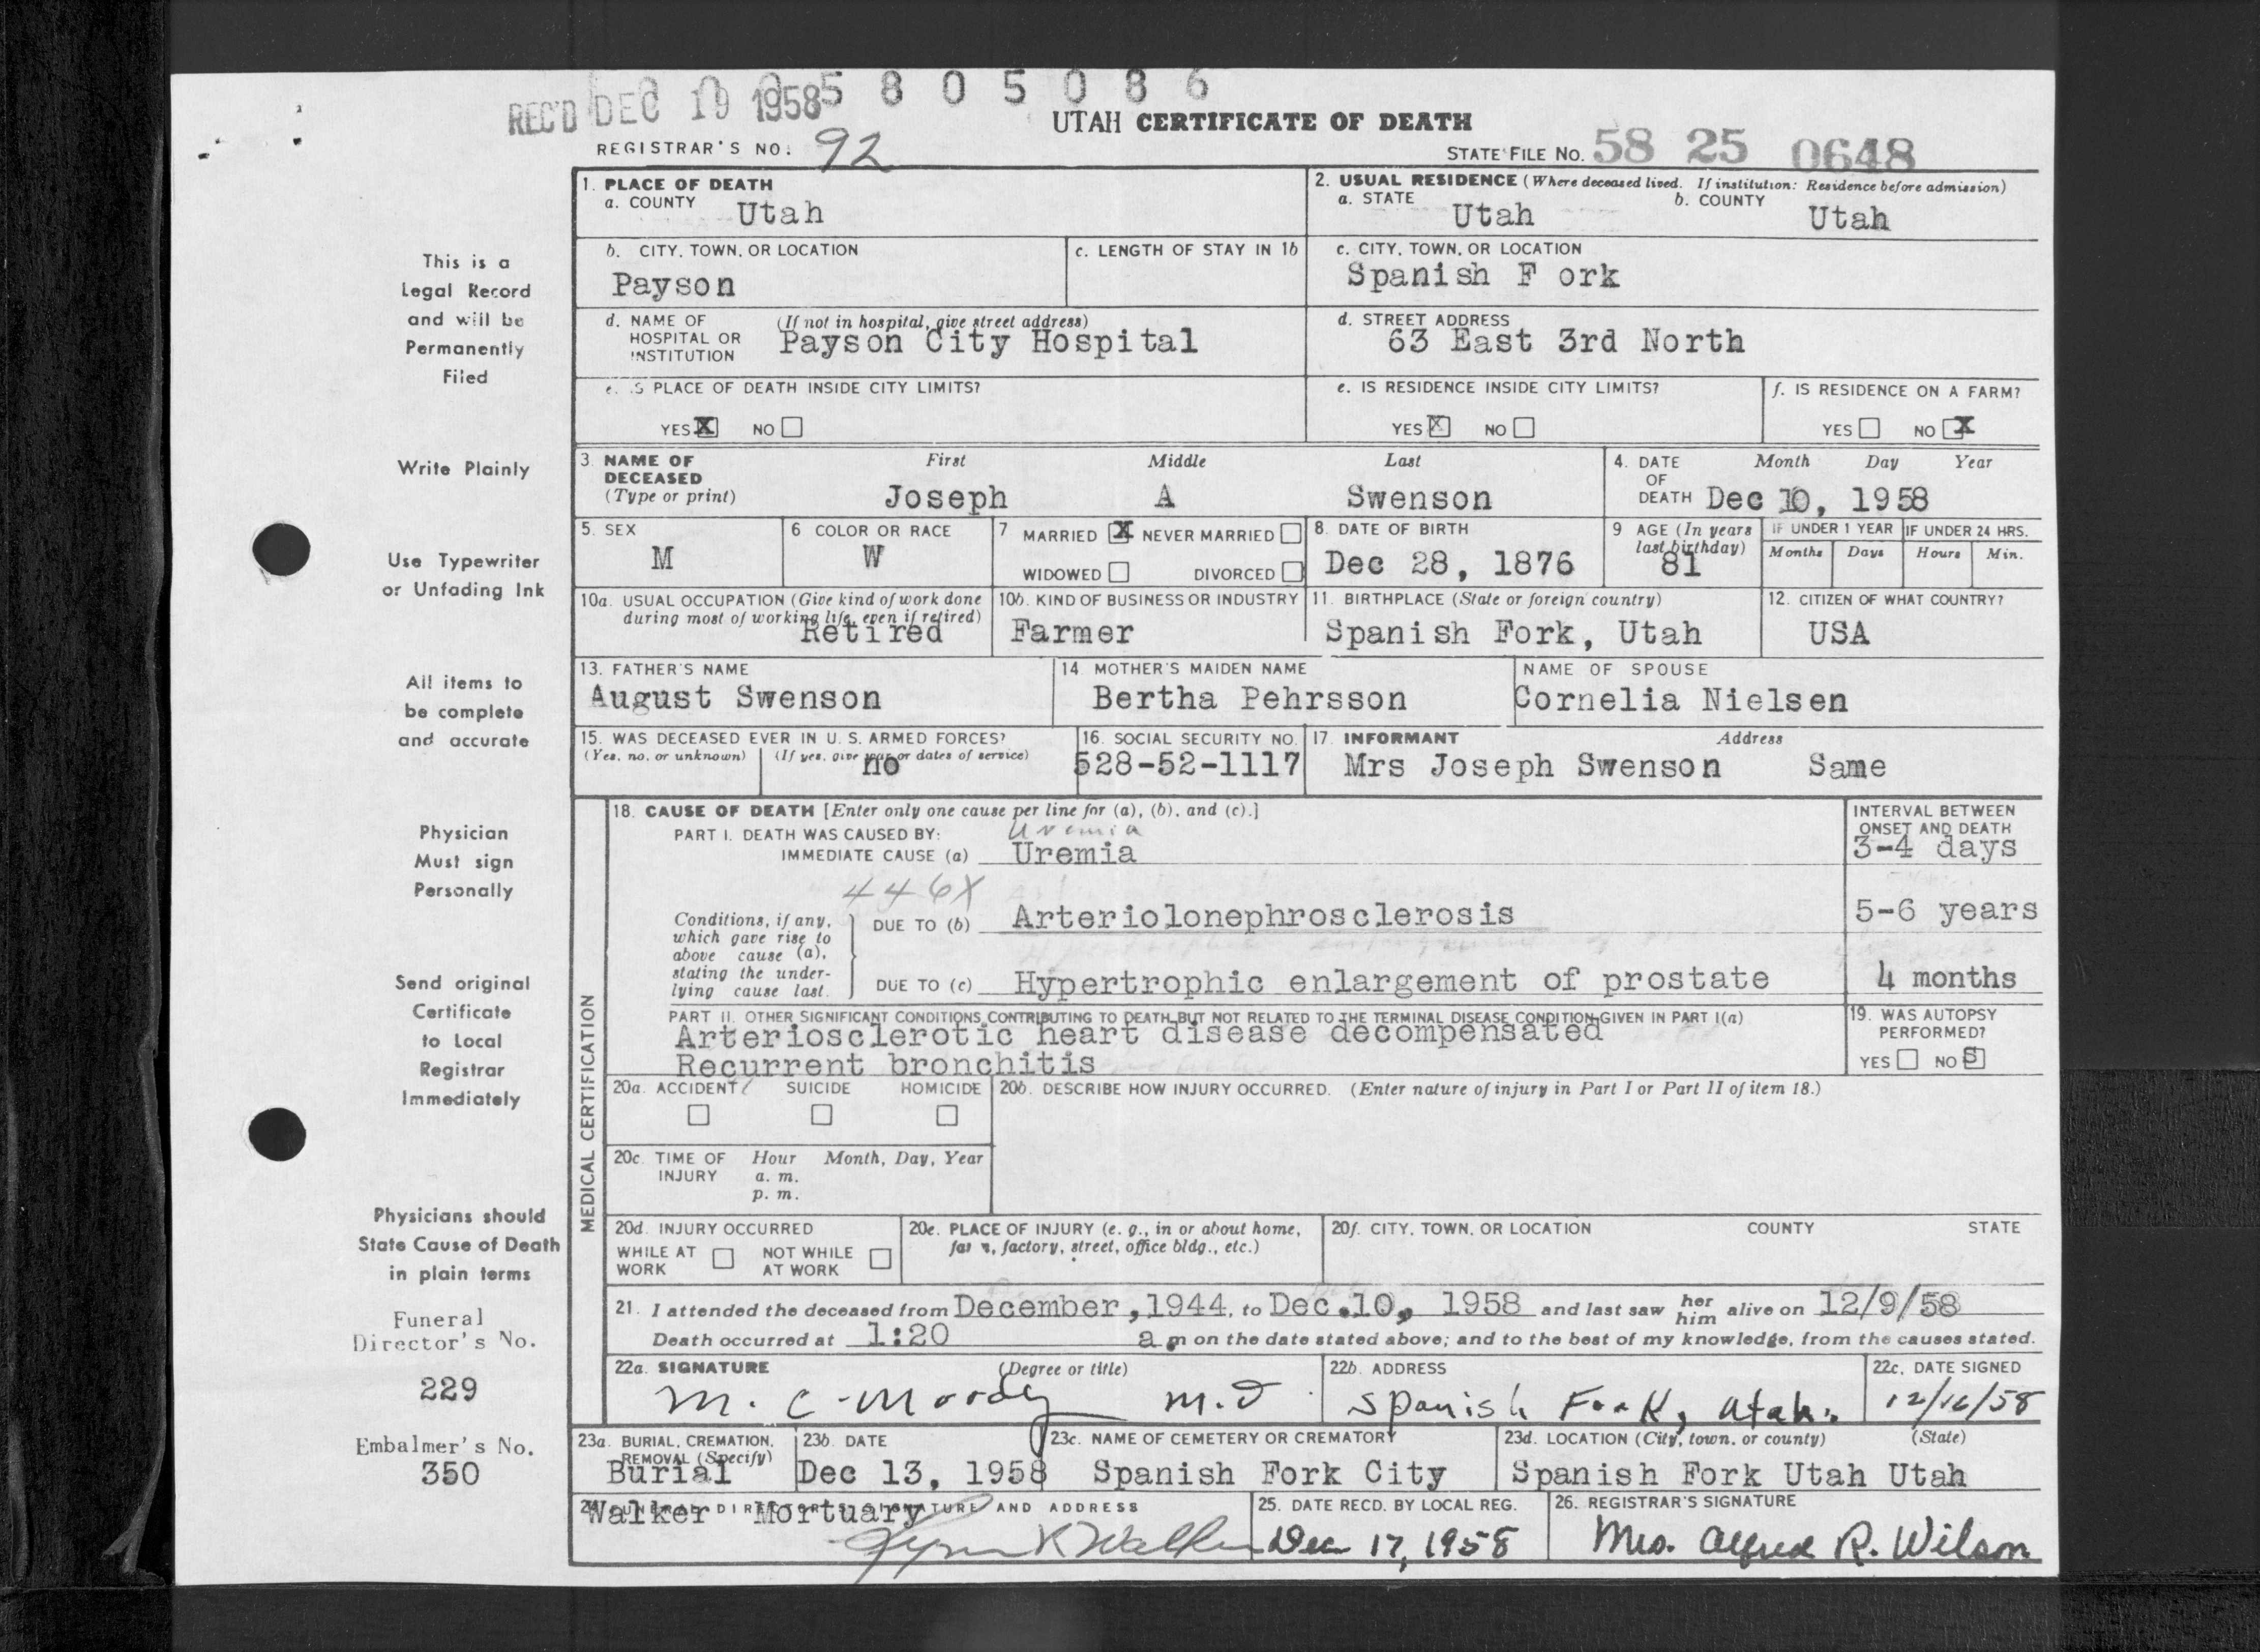 REC'D DEC 19 1958 5 8 0 5 0 8 6
UTAH CERTIFICATE OF DEATH
REGISTRAR'S NO. 92
STATE FILE NO. 58 25 0648
This is a
Legal Record
and will be
Permanently
Filed
Write Plainly
Use Typewriter
or Unfading Ink
All items to
be complete
and accurate
Physician
Must sign
Personally
Send original
Certificate
to Local
Registrar
Immediately
Physicians should
State Cause of Death
in plain terms
Funeral
Director's No.
229
Embalmer's No.
350
1. PLACE OF DEATH
a. COUNTY Utah
2. USUAL RESIDENCE (Where deceased lived. If institution: Residence before admission)
a. STATE Utah b. COUNTY Utah
b. CITY, TOWN, OR LOCATION
Payson
c. LENGTH OF STAY IN 1b
c. CITY, TOWN, OR LOCATION
Spanish F ork
d. NAME OF HOSPITAL OR INSTITUTION (If not in hospital, give street address)
Payson City Hospital
d. STREET ADDRESS
63 East 3rd North
e. IS PLACE OF DEATH INSIDE CITY LIMITS?
YES X NO
e. IS RESIDENCE INSIDE CITY LIMITS?
YES X NO
f. IS RESIDENCE ON A FARM?
YES NO X
3. NAME OF DECEASED (Type or print)
First Middle Last
Joseph A Swenson
4. DATE OF DEATH Month Day Year
Dec 10, 1958
5. SEX
M
6 COLOR OR RACE
W
7 MARRIED X NEVER MARRIED
WIDOWED DIVORCED
8. DATE OF BIRTH
Dec 28, 1876
9 AGE (In years last birthday)
81
IF UNDER 1 YEAR IF UNDER 24 HRS.
Months Days Hours Min.
10a. USUAL OCCUPATION (Give kind of work done
during most of working life, even if retired)
Retired
10b. KIND OF BUSINESS OR INDUSTRY
Farmer
11. BIRTHPLACE (State or foreign country)
Spanish Fork, Utah
12. CITIZEN OF WHAT COUNTRY?
USA
13. FATHER'S NAME
August Swenson
14 MOTHER'S MAIDEN NAME
Bertha Pehrsson
NAME OF SPOUSE
Cornelia Nielsen
15. WAS DECEASED EVER IN U. S. ARMED FORCES?
(Yes, no, or unknown) (If yes, give war or dates of service)
no
16. SOCIAL SECURITY NO.
528-52-1117
17. INFORMANT Address
Mrs Joseph Swenson Same
MEDICAL CERTIFICATION
18. CAUSE OF DEATH [Enter only one cause per line for (a), (b), and (c).]
INTERVAL BETWEEN
ONSET AND DEATH
PART I. DEATH WAS CAUSED BY: Uremia
IMMEDIATE CAUSE (a) Uremia
3-4 days
446X
Conditions, if any,
which gave rise to
above cause (a),
stating the under-
lying cause last.
DUE TO (b) Arteriolonephrosclerosis
5-6 years
DUE TO (c) Hypertrophic enlargement of prostate
4 months
PART II. OTHER SIGNIFICANT CONDITIONS CONTRIBUTING TO DEATH BUT NOT RELATED TO THE TERMINAL DISEASE CONDITION GIVEN IN PART I(a)
Arteriosclerotic heart disease decompensated
Recurrent bronchitis
19. WAS AUTOPSY
PERFORMED?
YES NO S
20a. ACCIDENT SUICIDE HOMICIDE
20b. DESCRIBE HOW INJURY OCCURRED. (Enter nature of injury in Part I or Part II of item 18.)
20c. TIME OF INJURY Hour Month, Day, Year
a. m.
p. m.
20d. INJURY OCCURRED
WHILE AT WORK NOT WHILE AT WORK
20e. PLACE OF INJURY (e. g., in or about home,
farm, factory, street, office bldg., etc.)
20f. CITY, TOWN, OR LOCATION COUNTY STATE
21. I attended the deceased from December, 1944, to Dec. 10, 1958 and last saw her him alive on 12/9/58
Death occurred at 1:20 a m on the date stated above; and to the best of my knowledge, from the causes stated.
22a. SIGNATURE (Degree or title)
M. C. Moody M.D
22b. ADDRESS
Spanish Fork, Utah.
22c. DATE SIGNED
12/16/58
23a. BURIAL, CREMATION,
REMOVAL (Specify)
Burial
23b. DATE
Dec 13, 1958
23c. NAME OF CEMETERY OR CREMATORY
Spanish Fork City
23d. LOCATION (City, town, or county) (State)
Spanish Fork Utah Utah
24. FUNERAL DIRECTOR'S SIGNATURE AND ADDRESS
Walker Mortuary
25. DATE RECD. BY LOCAL REG.
Dec 17, 1958
26. REGISTRAR'S SIGNATURE
Mrs. Alfred R. Wilson